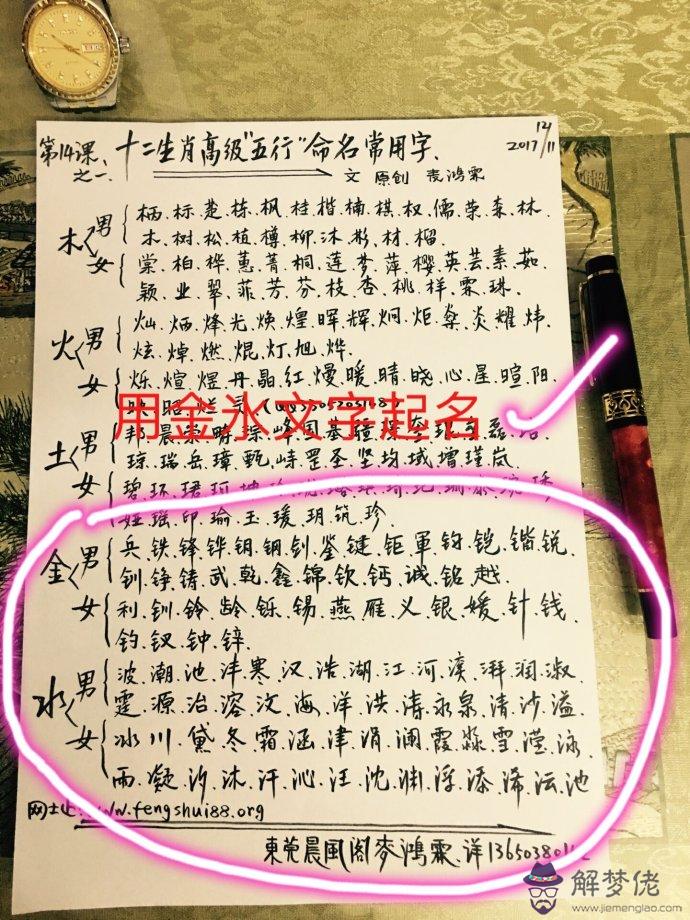 12/11
2017
第14课、十二生肖高级"五行"命名常用字、
之一、
文 原创 麦鸿霖
木 男 柄.标.楚.栋.枫.桂.楷.楠.棋.权.儒.荣.森.林.
木.树.松.植.樽.柳.沐.彬.材.榴
女 棠.柏.桦.蕙.菁.桐.莲.梦.萍.樱.英.芸.素.茹
颖.业.翠.菲.芳.芬.枝.杏.桃.样.霖.珠.
火 男 灿.炳.烽.光.焕.煌.晖.辉.炯.炬.燊.炎.耀.炜.
炫.焯.燃.焜.灯.旭.烨.
女 烁.煊.煜.丹.晶.红.熳.暖.晴.晓.心.星.暄.阳.
用金水文字起名
土 男 邦.晨
琼.瑞.岳.璋.甄.峙.罡.圣.坚.均.域.增.瑾.岚
女 碧.环.珺
娅.瑶.印.瑜.玉.瑗.玥.筑.珍
金 男 兵.铁.锋.铧.钥.钢.钊.鉴.键.钜.軍.钧.铠.锴.锐.
钏.铮.铸.武.乾.鑫.锦.钦.钙.诚.铭.越.
女 利.钏.铃.龄.铄.锡.燕.雁.义.银.媛.针.钱.
钧.钗.钟.锌.
水 男 波.潮.池.沣.寒.汉.浩.湖.江.河.溪.湃.润.淑.
霆.源.治.溶.汶.海.洋.洪.涛.永.泉.清.沙.溢.
女 冰.川.黛.冬.霜.涵.津.涓.澜.霞.淼.雪.滢.泳.
雨.凝.汐.沐.汗.沁.汪.沈.渊.浮.添.浠.沄.池
网士止:www.fengshui88.org
東莞晨風阁麥鴻霖.详136503801
解梦佬
www.jiemenglao.com